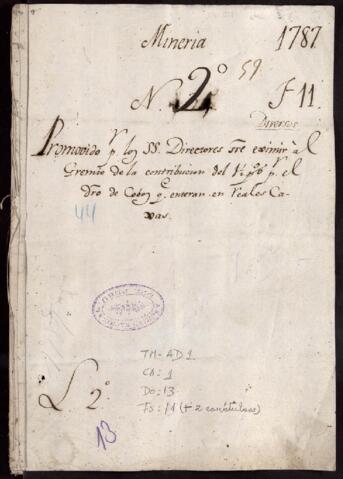 Mineria 1787
N. 2º 59 F 11
Diversos
Promovido pr. los SS. Directores sre. eximir al
Gremio de la contribucion del pr. el
dro de Cobos q. enteran en reales Ca-
xas.
44
L 2º
13
TM-AD1
CA: 1
DO: 13
FS: 11 (+ 2 carátulas)